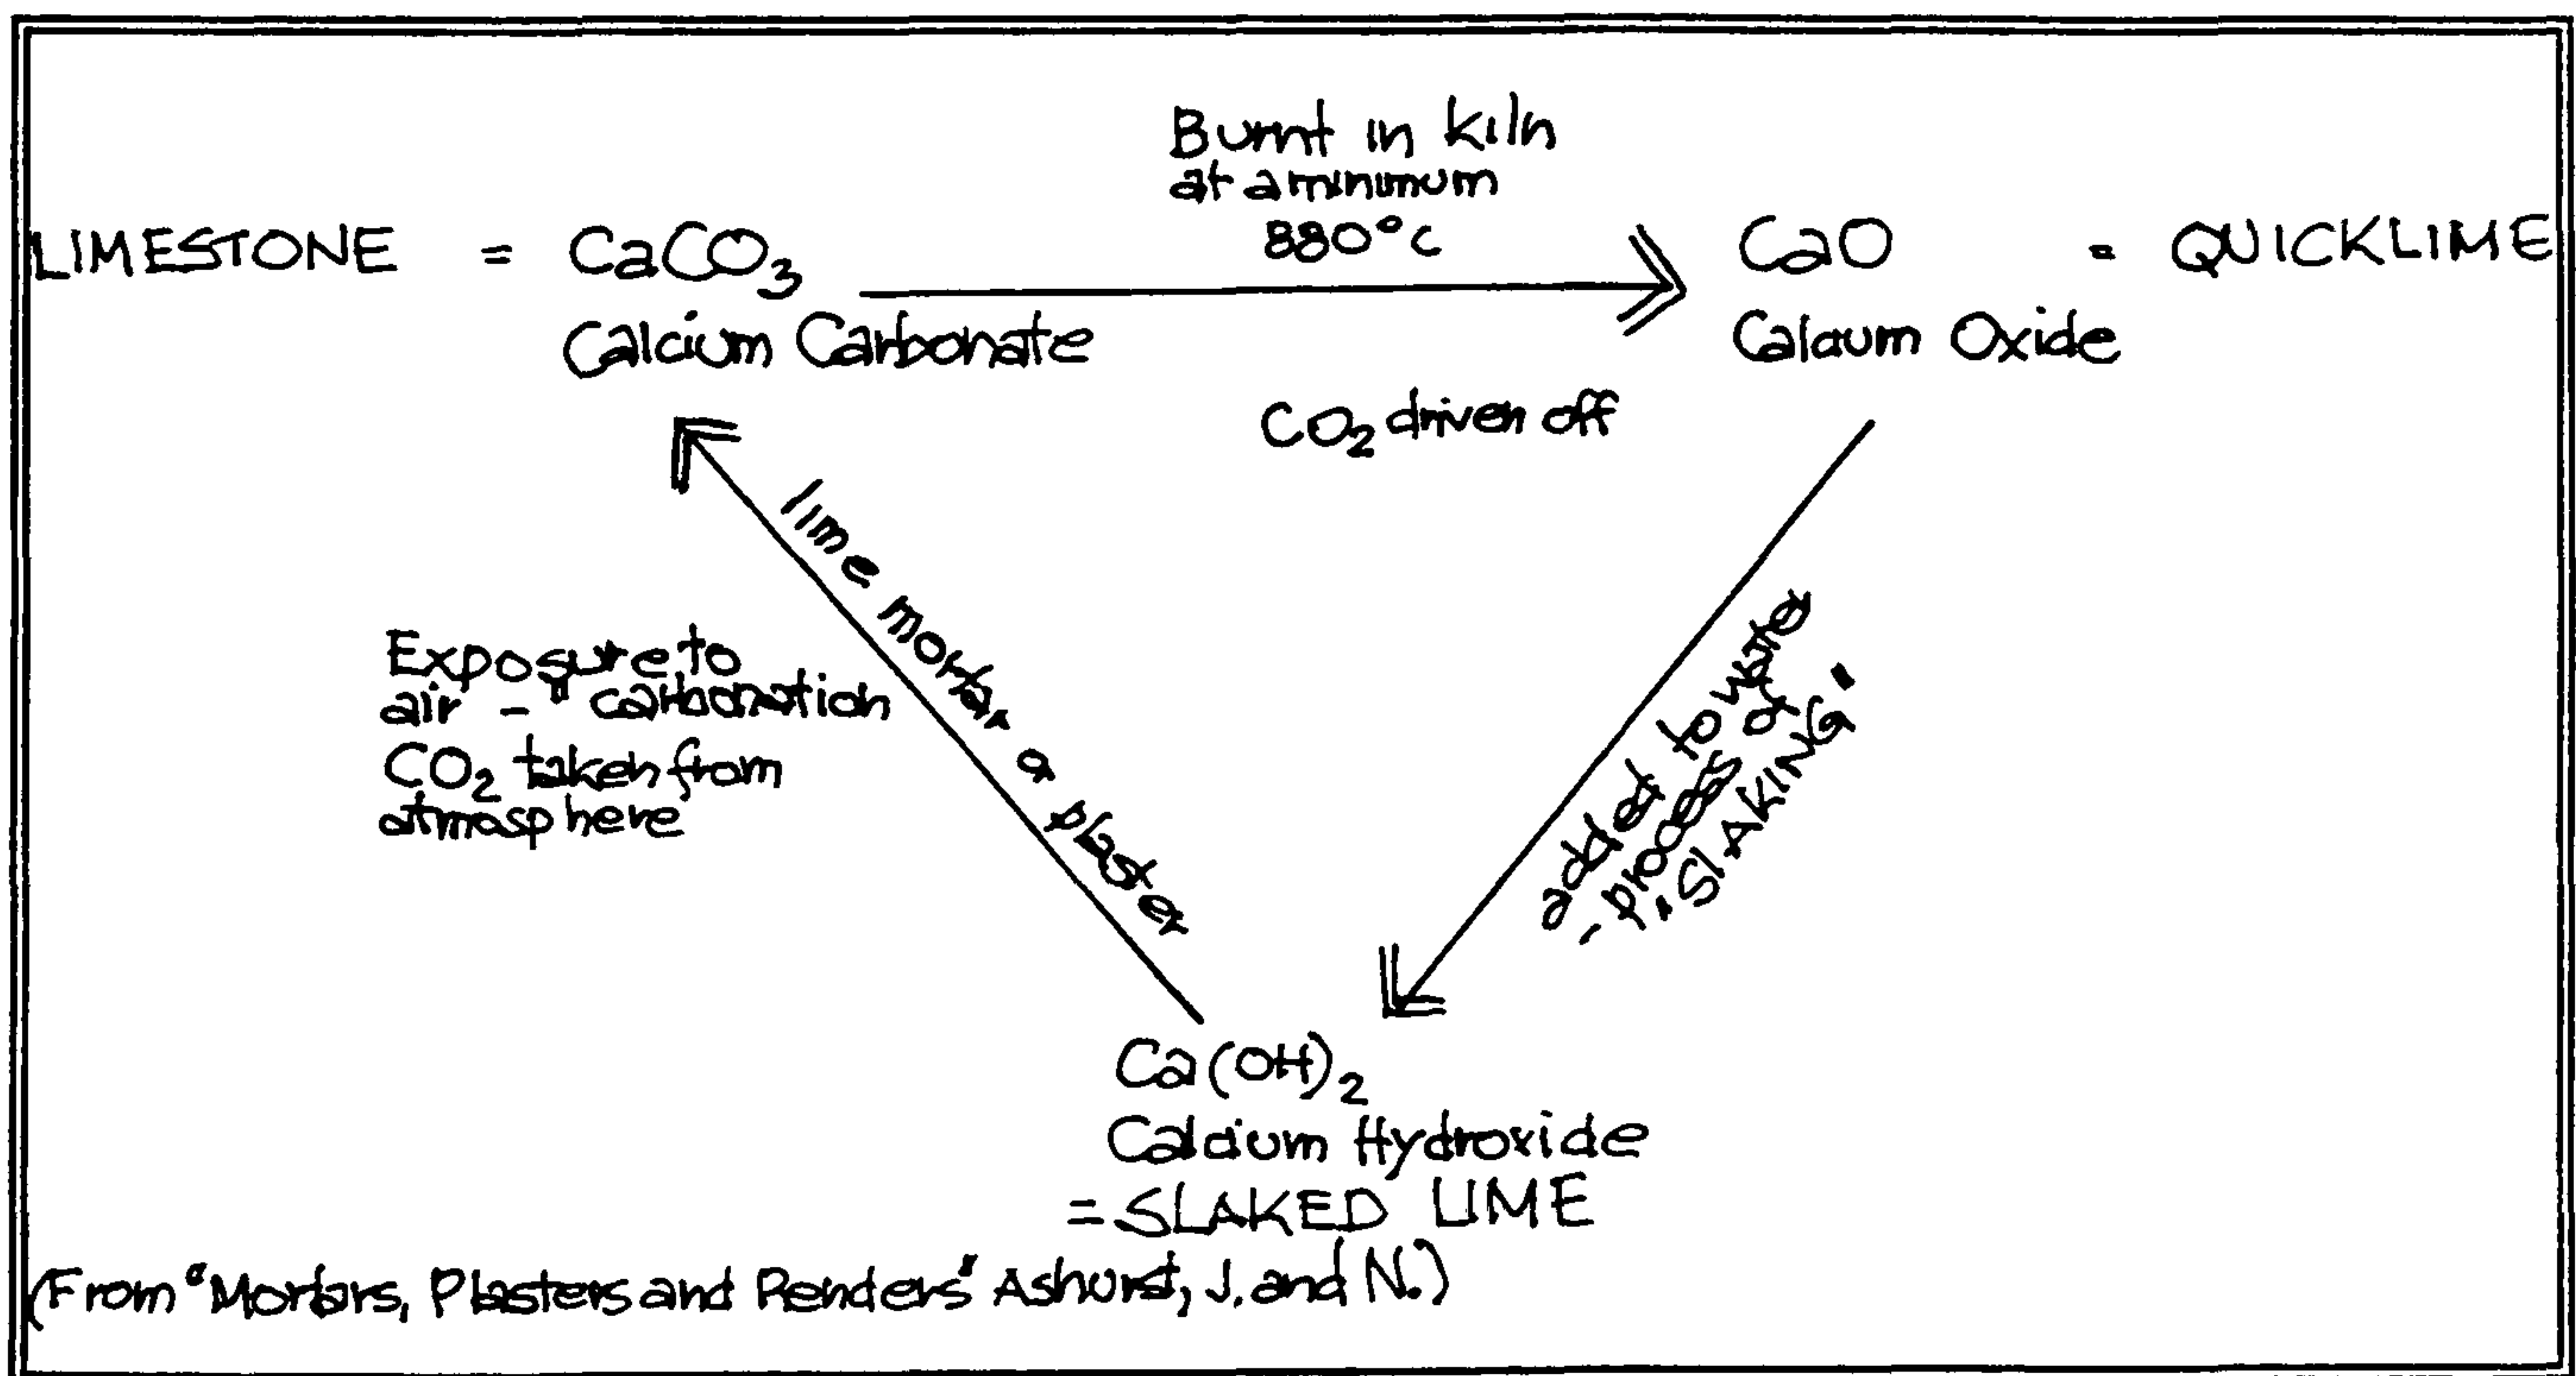 Burnt in kiln
at a minimum
880°C
LIMESTONE = CaCO₃
Calcium Carbonate
CaO = QUICKLIME
Calcium Oxide
CO₂ driven off
lime mortar or plaster
Exposure to
air - "carbonation
CO₂ taken from
atmosphere
added to water
- process of
"SLAKING"
Ca(OH)₂
Calcium Hydroxide
= SLAKED LIME
(From "Mortars, Plasters and Renders" Ashurst, J. and N.)